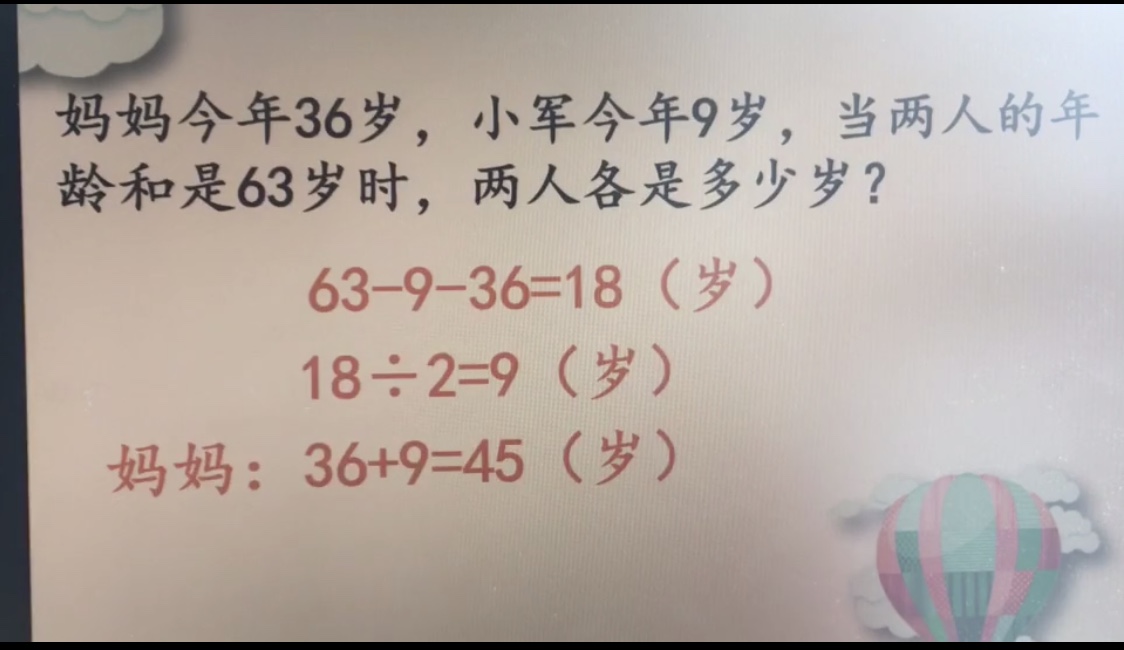 妈妈今年36岁，小军今年9岁，当两人的年
龄和是63岁时，两人各是多少岁？
63-9-36=18（岁）
18÷2=9（岁）
妈妈：36+9=45（岁）